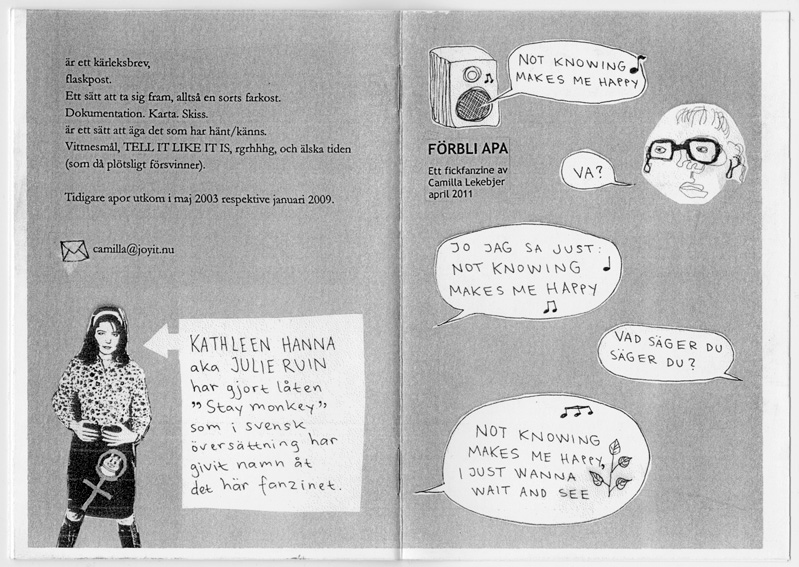 är ett kärleksbrev,
flaskpost.
Ett sätt att ta sig fram, alltså en sorts farkost.
Dokumentation. Karta. Skiss.
är ett sätt att äga det som har hänt/känns.
Vittnesmål, TELL IT LIKE IT IS, rgrhhhg, och älska tiden
(som då plötsligt försvinner).
Tidigare apor utkom i maj 2003 respektive januari 2009.
camilla@joyit.nu
KATHLEEN HANNA
aka JULIE RUIN
har gjort låten
"Stay monkey"
som i svensk
översättning har
givit namn åt
det här fanzinet.
NOT KNOWING
MAKES ME HAPPY
FÖRBLI APA
Ett fickfanzine av
Camilla Lekebjer
april 2011
VA?
JO JAG SA JUST:
NOT KNOWING
MAKES ME HAPPY
VAD SÄGER DU
SÄGER DU?
NOT KNOWING
MAKES ME HAPPY,
I JUST WANNA
WAIT AND SEE